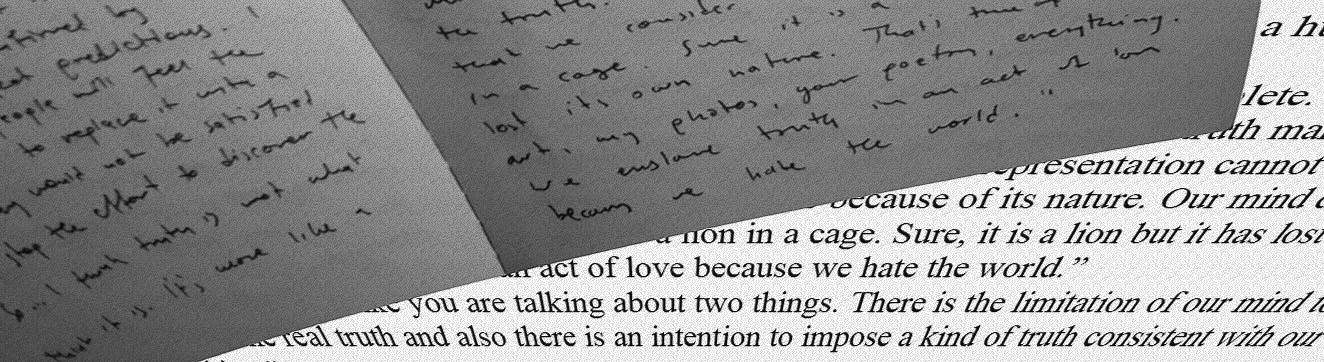 by
predictions. I
people will feel the
to replace it with a
would not be satisfied
stop the effort to discover the
I think truth is not what
that it is. It's more like a
the truth.
that we consider
in a cage. Sure it is a
lost its own nature. That's true
art, my photos, your poetry, everything.
We enslave truth in an act of love
because we hate the world."
a
because of its nature. Our mind
a lion in a cage. Sure, it is a lion but it has lost
act of love because we hate the world.”
you are talking about two things. There is the limitation of our mind
real truth and also there is an intention to impose a kind of truth consistent with our